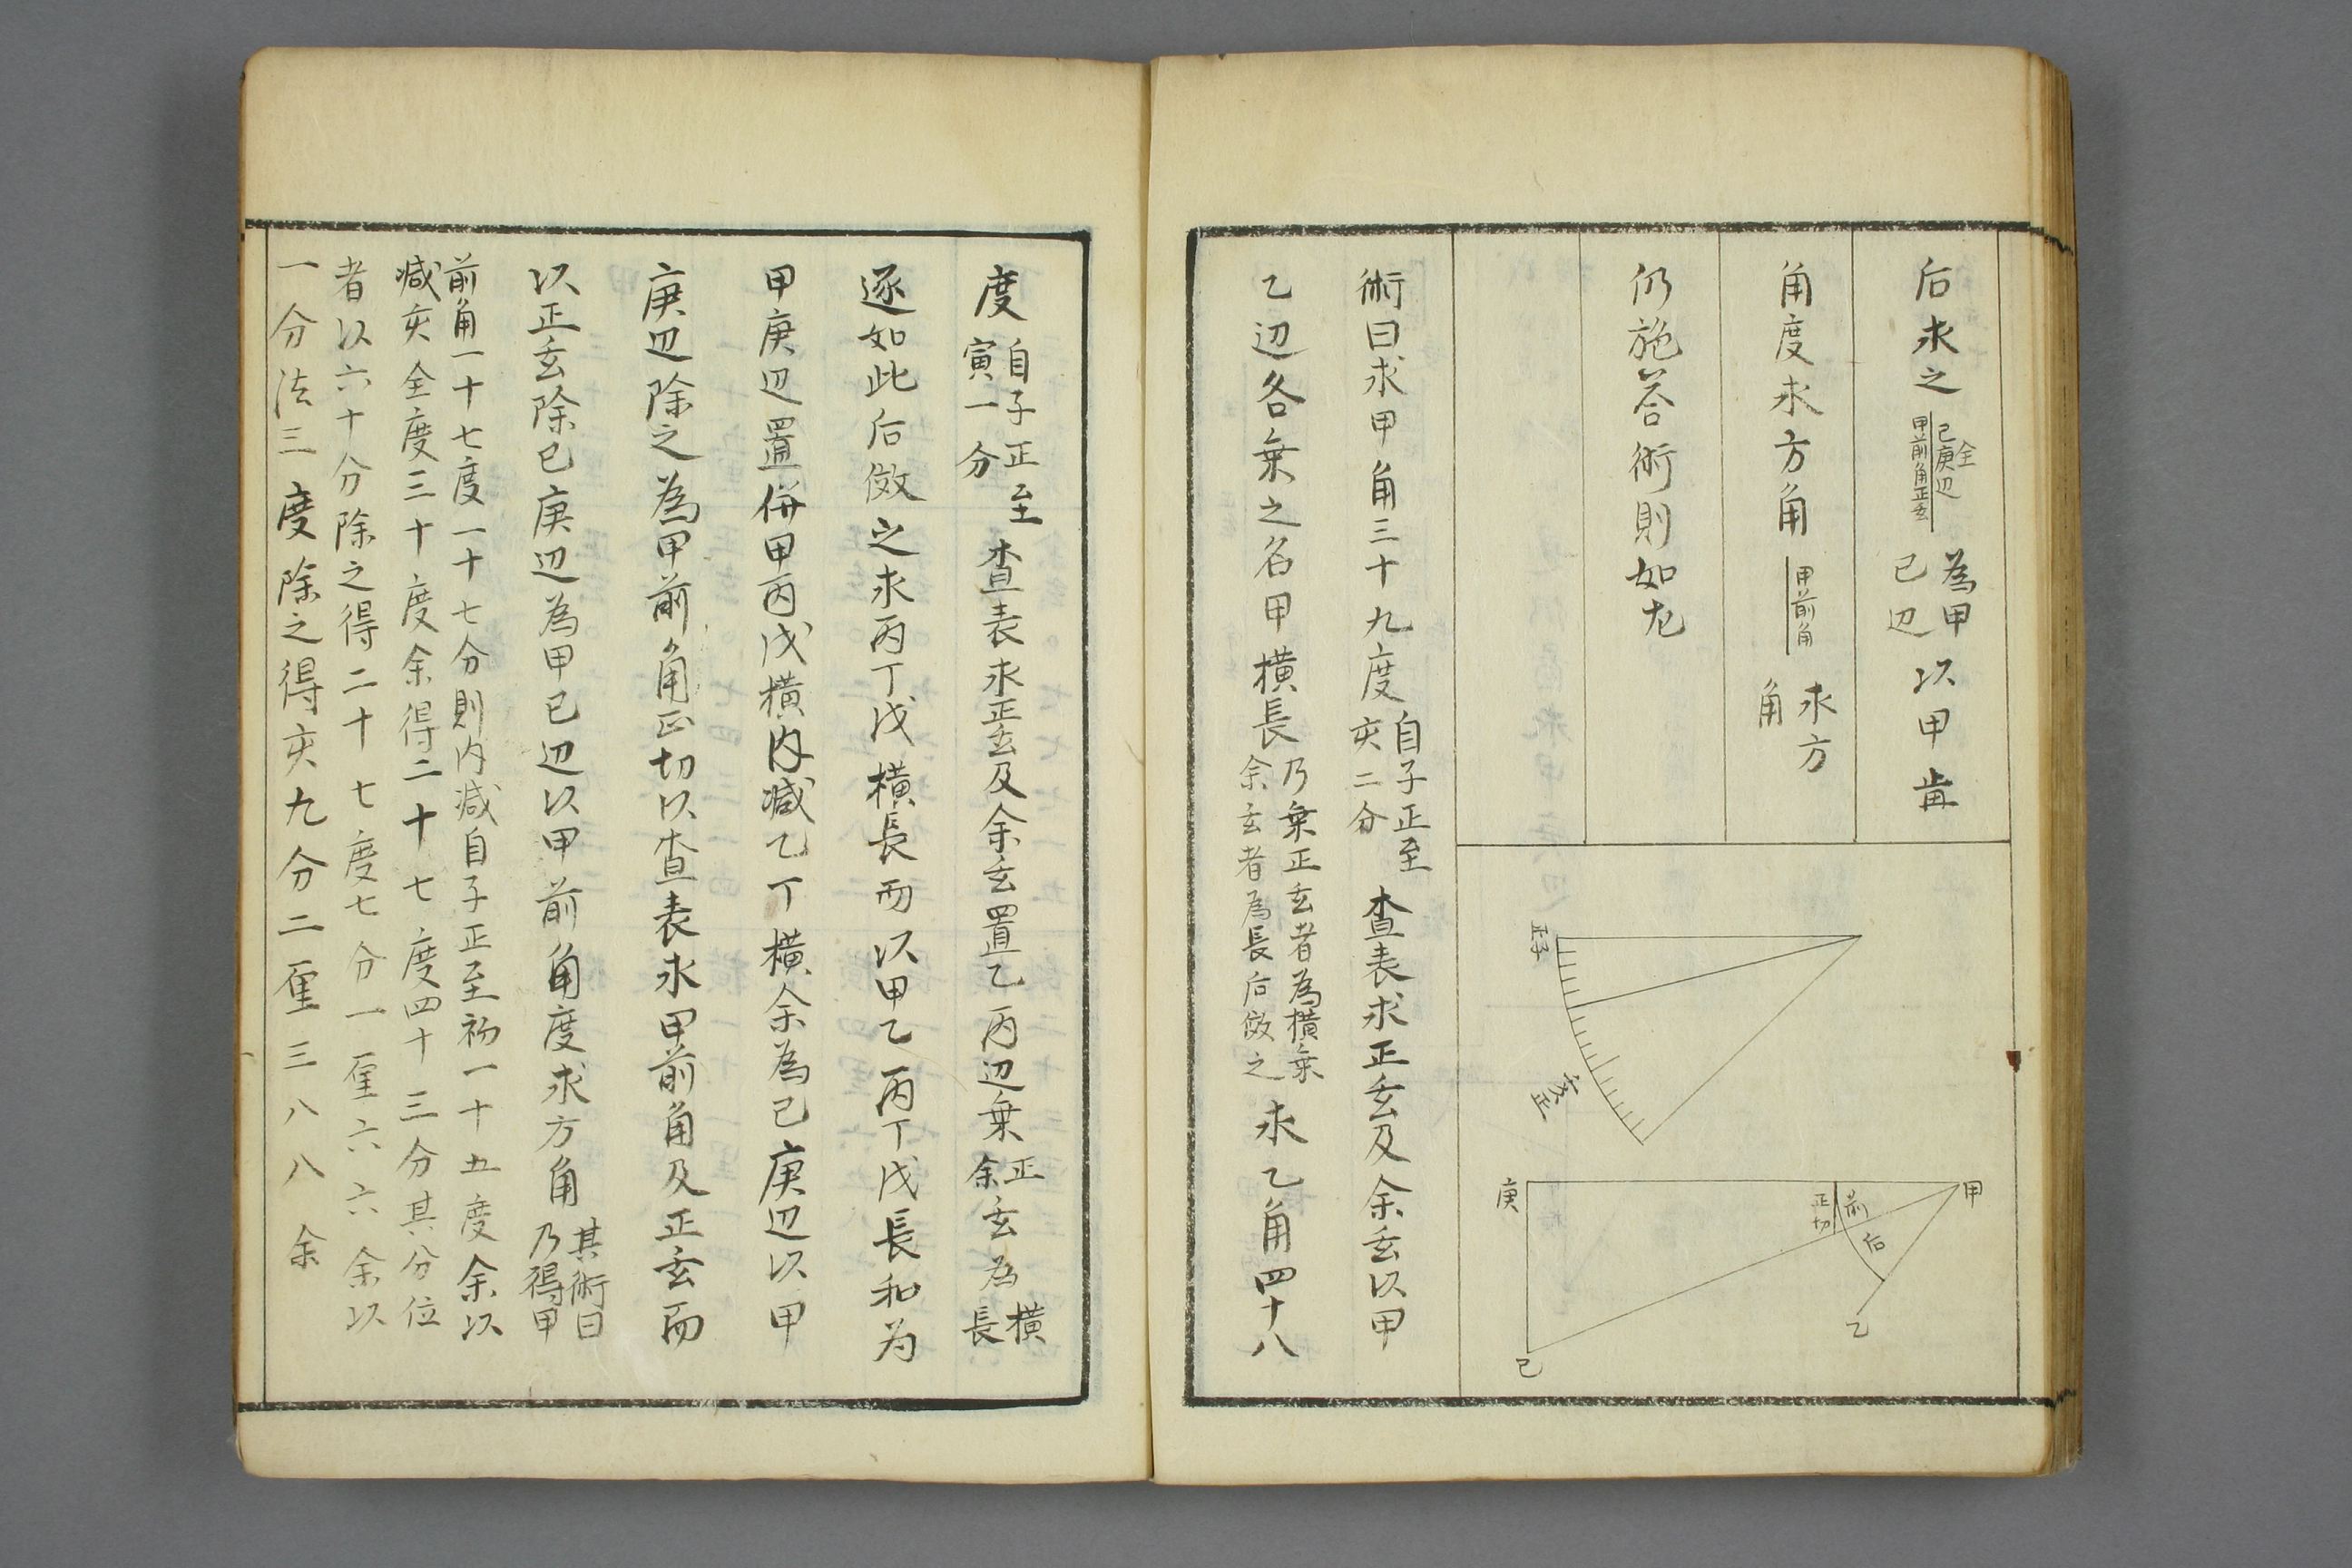 后求之 己庚辺全 甲前角正玄 為甲己辺 以甲歯
角度求方角 甲前角 求方角
仍施答術則如左
子正
亥正
甲
前
后
正切
庚
乙
己
術曰求甲角三十九度 自子正至亥二分 査表求正玄及余玄以甲
乙辺各乗之名甲横長 乃乗正玄者為横乗余玄者為長后倣之 求乙角四十八
度 自子正至寅一分 査表求正玄及余玄置乙丙辺乗 正余 玄為 横長
逐如此后倣之求丙丁戊横長而以甲乙丙丁戊長和为
甲庚辺置併甲丙戊横内減乙丁横余為己庚辺以甲
庚辺除之為甲前角正切以査表求甲前角及正玄而
以正玄除己庚辺為甲己辺以甲前角度求方角 其術曰乃得甲
前角一十七度一十七分則内減自子正至初一十五度余以
減亥全度三十度余得二十七度四十三分其分位
者以六十分除之得二十七度七分一厘六六余以
一分法三度除之得亥九分二厘三八八余